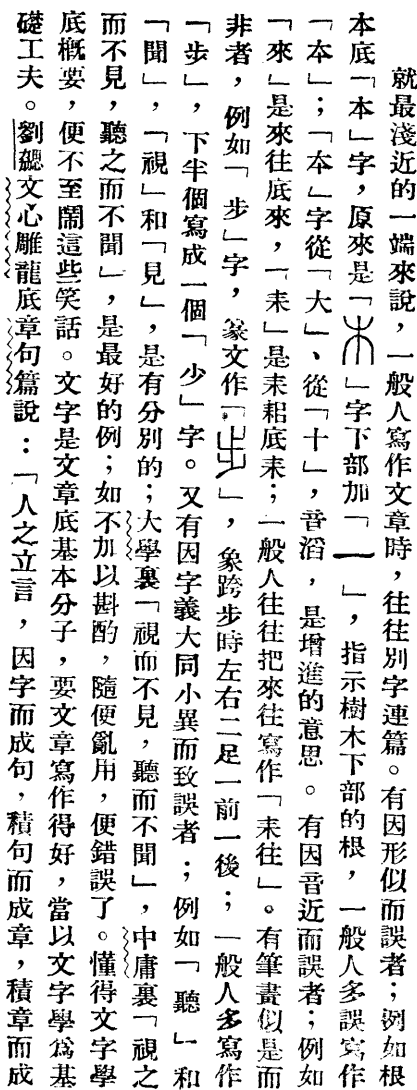 就最淺近的一端來說，一般人寫作文章時，往往別字連篇。有因形似而誤者；例如根
本底「本」字，原來是「木」字下部加「一」，指示樹木下部的根，一般人多誤寫作
「夲」；「夲」字從「大」、從「十」，音滔，是增進的意思。有因音近而誤者；例如
「來」是來往底來，「耒」是耒耜底耒；一般人往往把來往寫作「耒往」。有筆畫似是而
非者，例如「步」字，篆文作「」，象跨步時左右二足一前一後；一般人多寫作
「步」，下半個寫成一個「少」字。又有因字義大同小異而致誤者；例如「聽」和
「聞」，「視」和「見」，是有分別的；大學裏「視而不見，聽而不聞」，中庸裏「視之
而不見，聽之而不聞」，是最好的例；如不加以斟酌，隨便亂用，便錯誤了。懂得文字學
底概要，便不至鬧這些笑話。文字是文章底基本分子，要文章寫作得好，當以文字學爲基
礎工夫。劉勰文心雕龍底章句篇說：「人之立言，因字而成句，積句而成章，積章而成